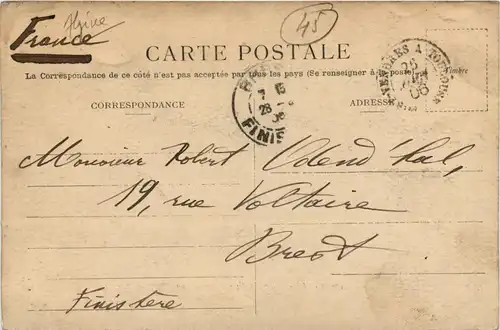 France
45
CARTE POSTALE
La Correspondance de ce côté n'est pas acceptée par tous les pays (Se renseigner à la poste)
Timbre
CORRESPONDANCE
ADRESSE
7 15
28
06
FINIS
VENDRES A TOULOUSE
26
06
Monsieur Robert Odend'hal,
19, rue Voltaire
Brest
Finistère